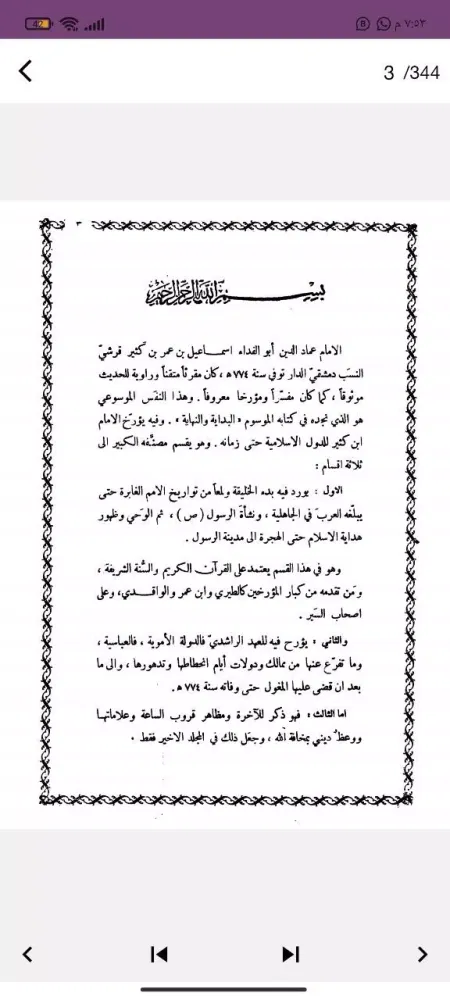 42
٧:٥٣ م
3 /344
٣
بسم الله الرحمن الرحيم
الامام عماد الدين أبو الفداء اسماعيل بن عمر بن كثير قرشيّ
النسَب دمشقيّ الدار توفي سنة ٧٧٤ه ، كان مقرئاً متقناً وراوية للحديث
موثوقاً ، كما كان مفسّراً ومؤرخا معروفاً . وهذا النفَس الموسوعي
هو الذي نجده في كتابه الموسوم « البداية والنهاية » . وفيه يؤرّخ الامام
ابن كثير للدول الاسلامية حتى زمانه . وهو يقسم مصنّفه الكبير الى
ثلاثة اقسام :
الاول : يورد فيه بدء الخليقة ولمعاً من تواريخ الامم الغابرة حتى
يبلّغه العربَ في الجاهلية ، ونشأة الرسول (ص) ، ثم الوَحي وظهور
هداية الاسلام حتى الهجرة الى مدينة الرسول .
وهو في هذا القسم يعتمد على القرآن الكريم والسُّنة الشريفة ،
ومَن تقدمه من كبار المؤرخين كالطبري وابن عمر والواقدي، وعلى
اصحاب السّير .
والثاني : يؤرح فيه للعهد الراشديّ فالدولة الأموية ، فالعباسية ،
وما تفرّع عنها من ممالك ودولات أيام انحطاطها وتدهورها ، والى ما
بعد ان قضى عليها المغول حتى وفاته سنة ٧٧٤ ه.
اما الثالث : فهو ذكر للآخرة ومظاهر قروب الساعة وعلاماتها
ووعظٌ ديني بمخافة الله ، وجعل ذلك في المجلد الاخير فقط .